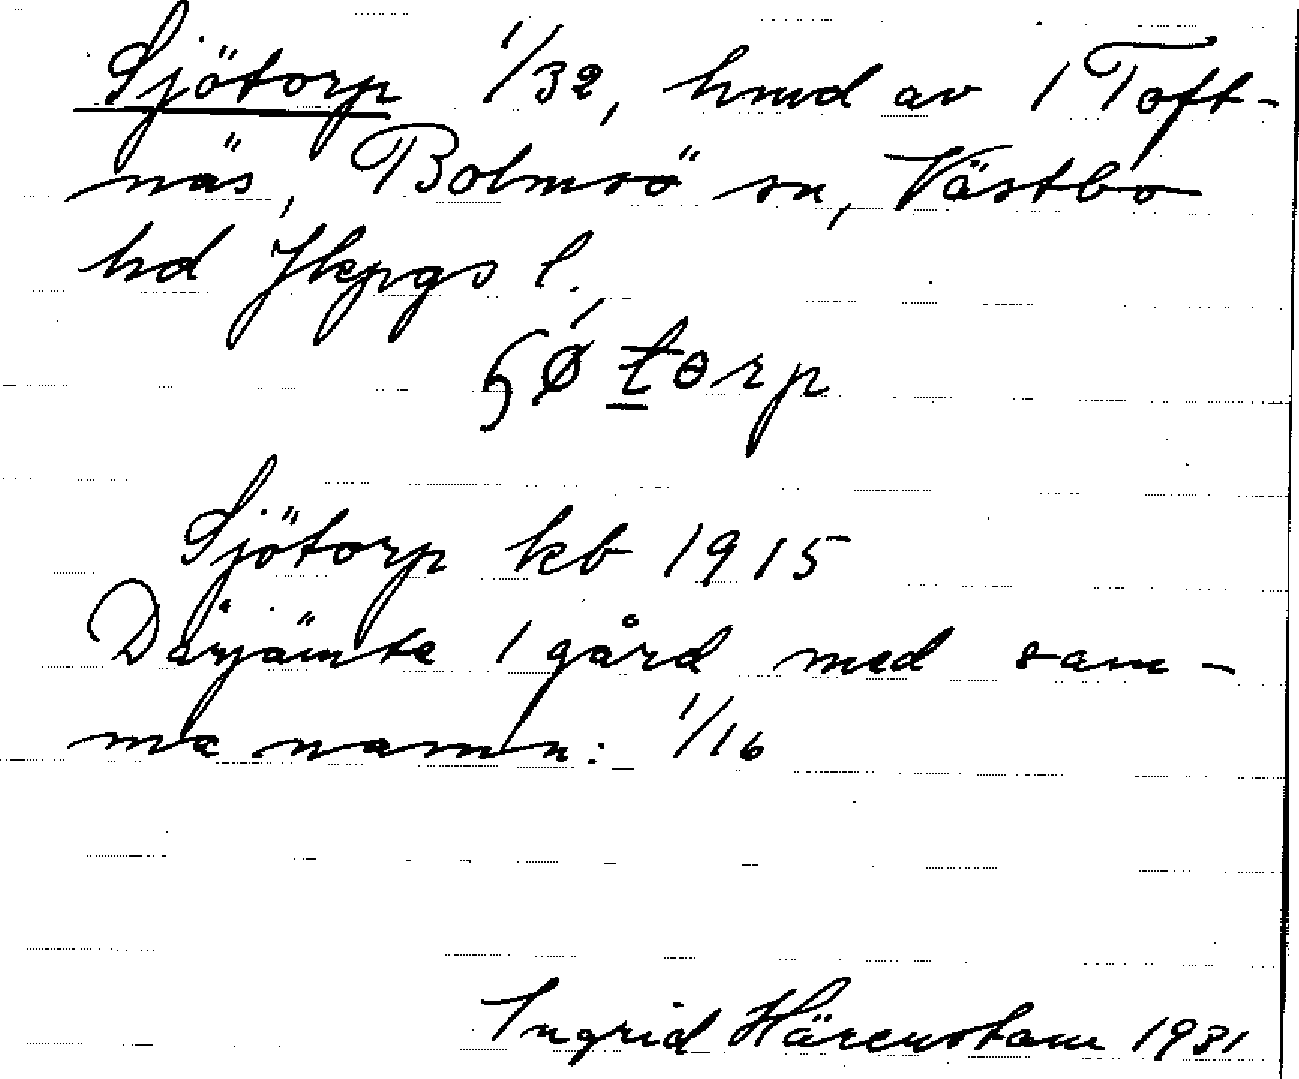 Sjötorp 1/32, hmd av 1 Toft-
näs, Bolmsö sn, Västbo
hd Jkpgs l.
ɧǿt̲ɵrp
Sjötorp kb 1915
Därjämte 1 gård med sam-
ma namn: 1/16
Ingrid Härenstam 1931